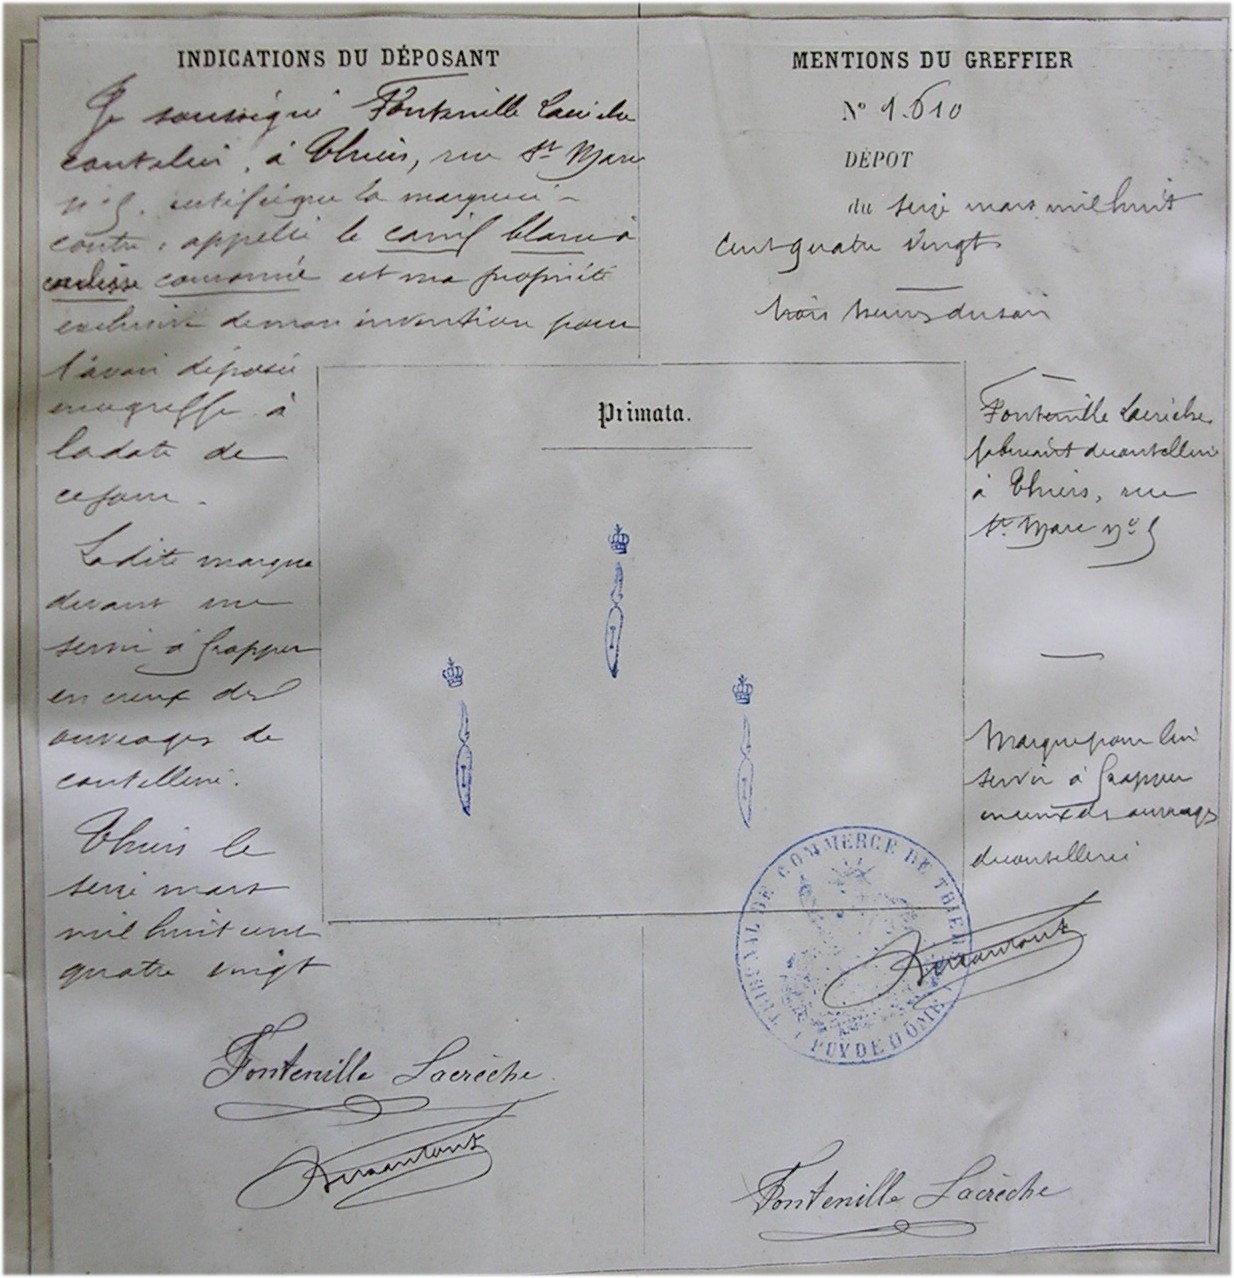 INDICATIONS DU DÉPOSANT
Je soussigné Fontenille Lacrèche
coutelier, à Thiers, rue St Marc
n° 5, certifie que la marque ci-
contre, appelée le canif blanc à
coulisse couronné est ma propriété
exclusive de mon invention pour
l'avoir déposée
au greffe à
la date de
ce jour.
Ladite marque
devant me
servir à frapper
en creux des
ouvrages de
coutellerie.
Thiers le
seize mars
mil huit cent
quatre vingt
Fontenille Lacrèche
MENTIONS DU GREFFIER
N° 1.610
DÉPOT
du seize mars mil huit
cent quatre vingt
trois heures du soir
Primata.
Fontenille Lacrèche
fabricant de coutellerie
à Thiers, rue
St Marc n° 5
Marque pour lui
servir à frapper
en creux des ouvrages
de coutellerie
TRIBUNAL DE COMMERCE DE THIERS
PUY DE DÔME
Fontenille Lacrèche